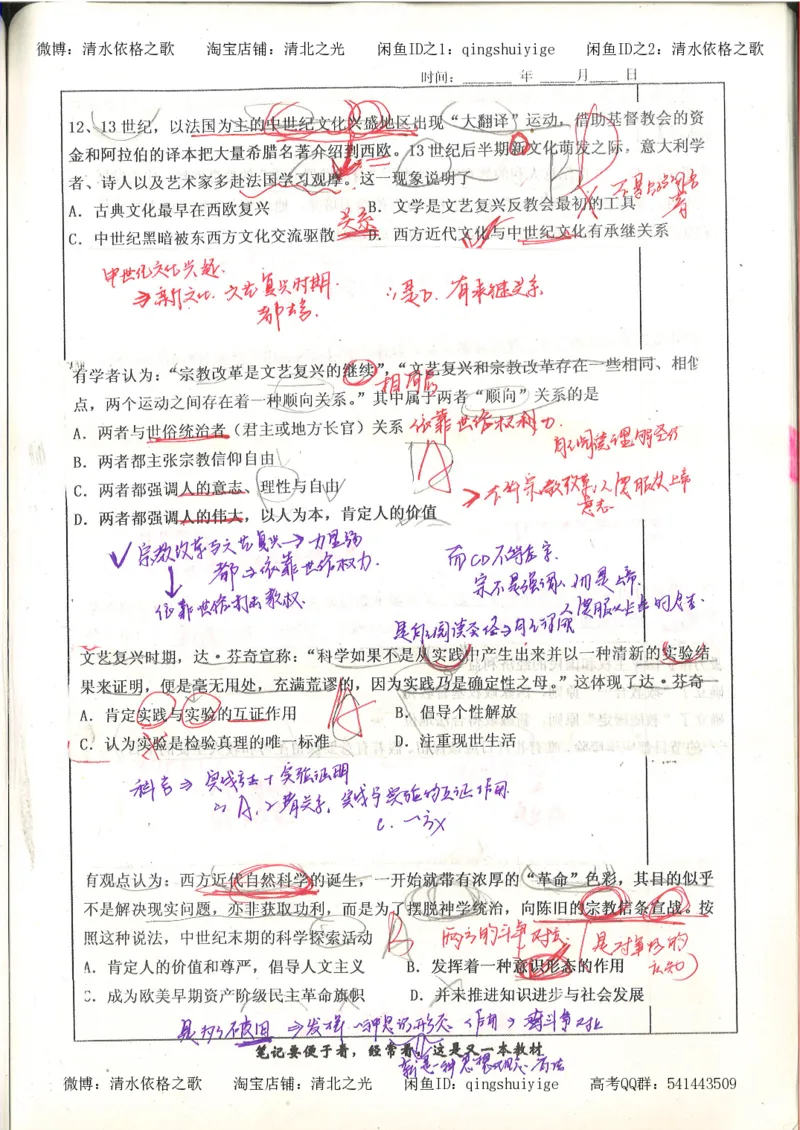 微博：清水依格之歌 淘宝店铺：清北之光 闲鱼ID之1：qingshuiyige 闲鱼ID之2：清水依格之歌
时间：＿＿＿年＿＿＿月＿＿＿日
12、13 世纪，以法国为主的中世纪文化兴盛地区出现“大翻译”运动，借助基督教会的资
金和阿拉伯的译本把大量希腊名著介绍到西欧。13 世纪后半期新文化萌发之际，意大利学
者、诗人以及艺术家多赴法国学习观摩。这一现象说明了
A．古典文化最早在西欧复兴 B．文学是文艺复兴反教会最初的工具
C．中世纪黑暗被东西方文化交流驱散 D．西方近代文化与中世纪文化有承继关系
关系
中世纪文化兴起.
⇒新文化. 文艺复兴时期. ∴是D. 有承继关系
有学者认为：“宗教改革是文艺复兴的继续”，“文艺复兴和宗教改革存在一些相同、相似
点，两个运动之间存在着一种顺向关系。”其中属于两者“顺向”关系的是
A．两者与世俗统治者（君主或地方长官）关系 依靠世俗权力.
B．两者都主张宗教信仰自由
C．两者都强调人的意志、理性与自由
D．两者都强调人的伟大，以人为本，肯定人的价值
A
✓宗教改革与文艺复兴→力量弱
都→依靠世俗权力.
依靠世俗打击教权.
文艺复兴时期，达·芬奇宣称：“科学如果不是从实践中产生出来并以一种清新的实验结
果来证明，便是毫无用处，充满荒谬的，因为实践乃是确定性之母。”这体现了达·芬奇
A．肯定实践与实验的互证作用 B．倡导个性解放
C．认为实验是检验真理的唯一标准 D．注重现世生活
A
科学⇒实践 + 实验证明
实践与实验的互证作用
有观点认为：西方近代自然科学的诞生，一开始就带有浓厚的“革命”色彩，其目的似乎
不是解决现实问题，亦非获取功利，而是为了摆脱神学统治，向陈旧的宗教信条宣战。按
照这种说法，中世纪末期的科学探索活动
B
A．肯定人的价值和尊严，倡导人文主义 B．发挥着一种意识形态的作用
C．成为欧美早期资产阶级民主革命旗帜 D．并未推进知识进步与社会发展
笔记要便于看，经常看，这是又一本教材
微博：清水依格之歌 淘宝店铺：清北之光 闲鱼ID：qingshuiyige 高考QQ群：541443509